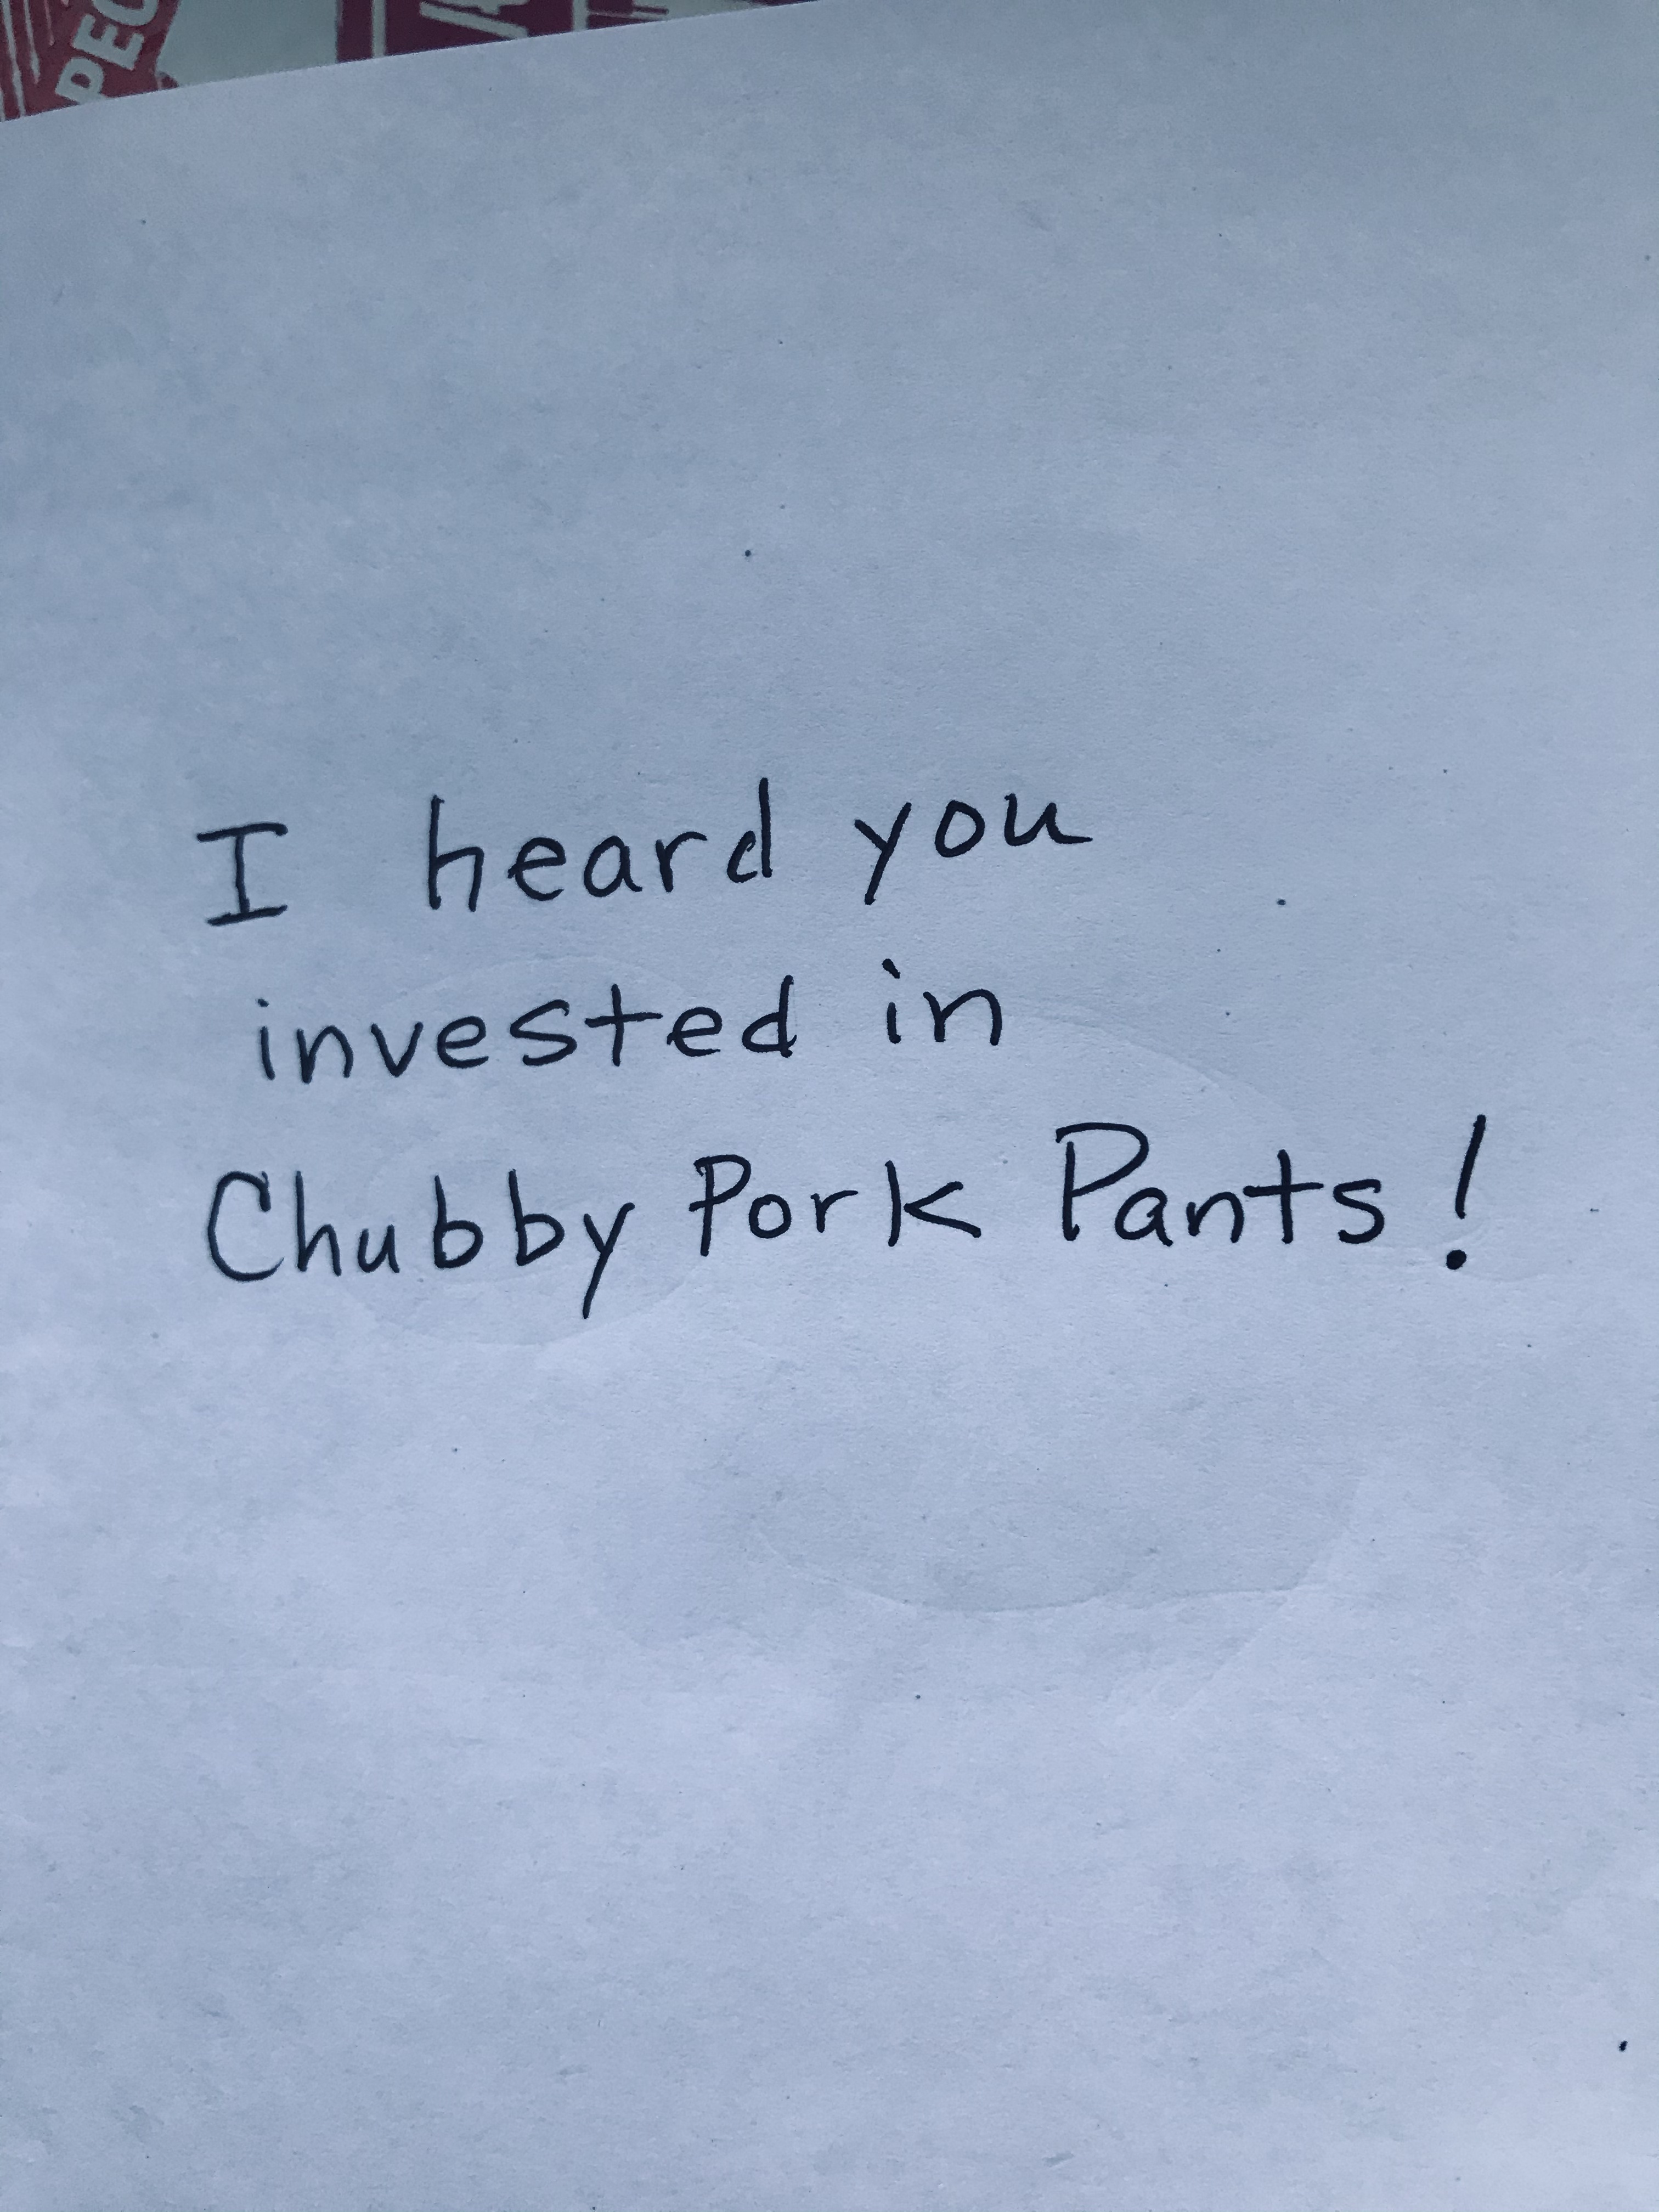 PEC
I heard you
invested in
Chubby Pork Pants!